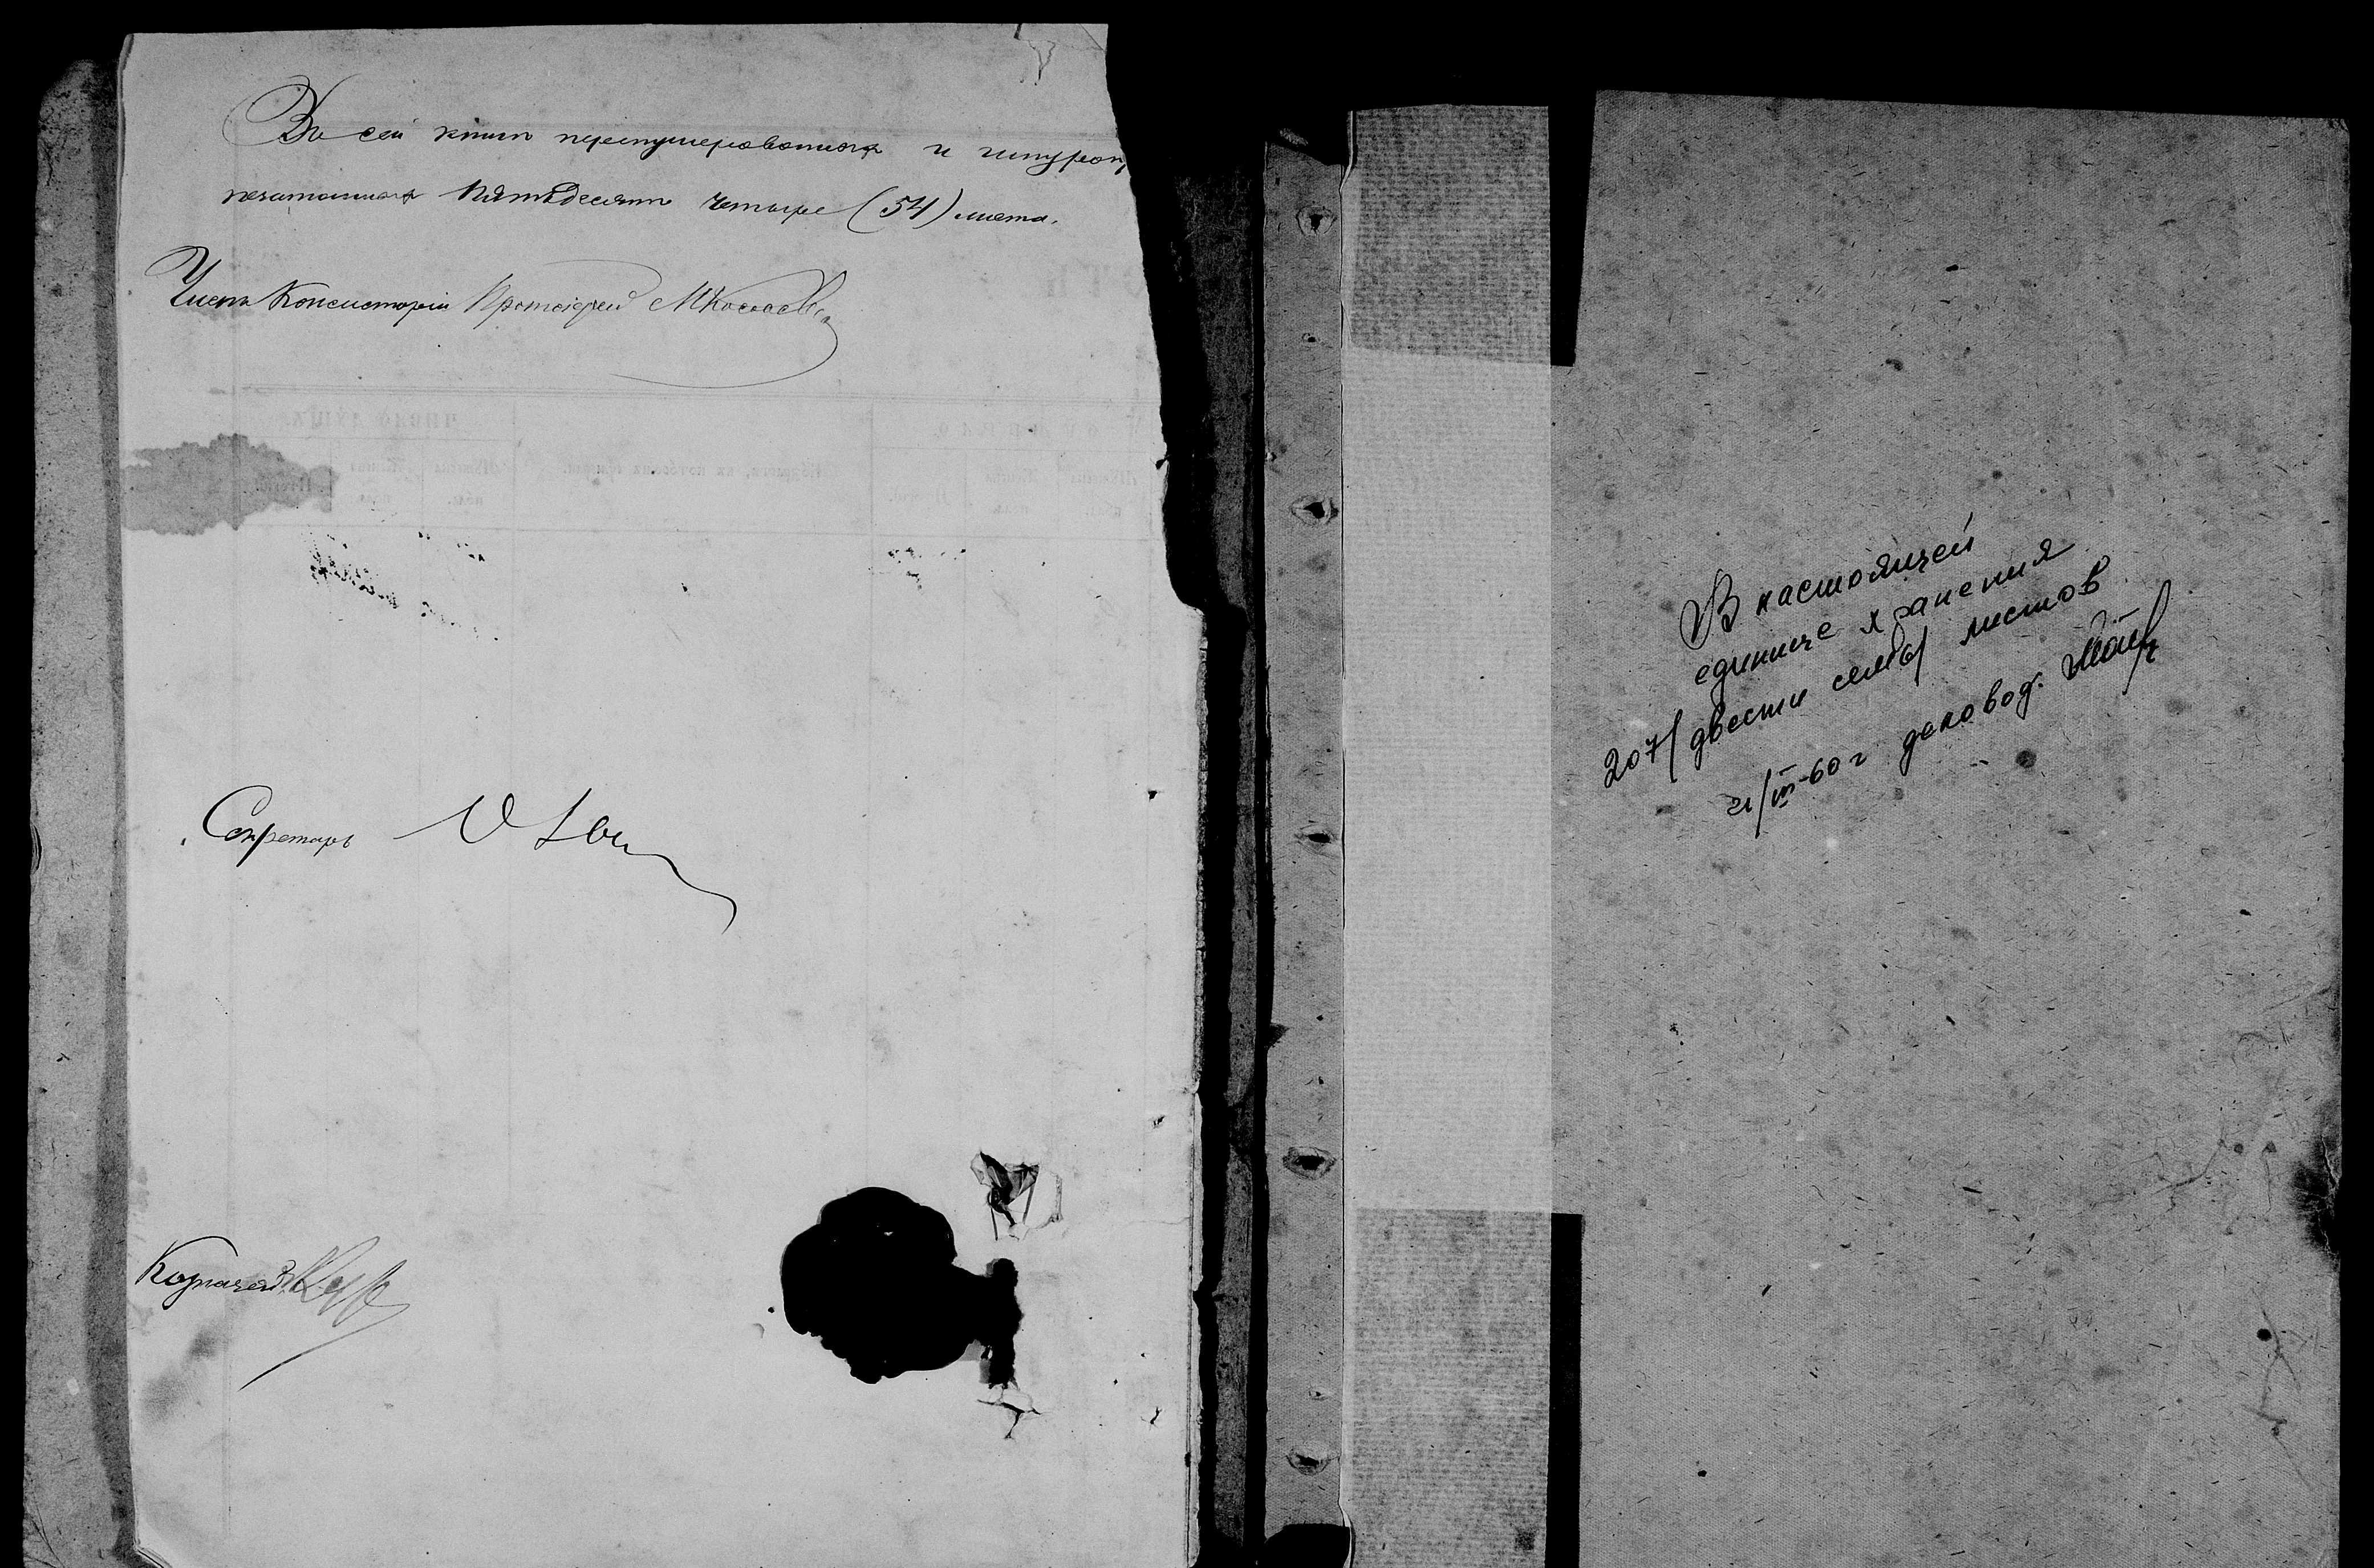 Въ сей книгѣ перенумерованныхъ и шнуроп
печатанныхъ Пятьдесятъ четыре (54) листа.
Членъ Консисторіи Протоіерей
Секретарь
Казначей
В настоящей
единице хранения
207/двести семь/ листов
21/III-60 г деловод.